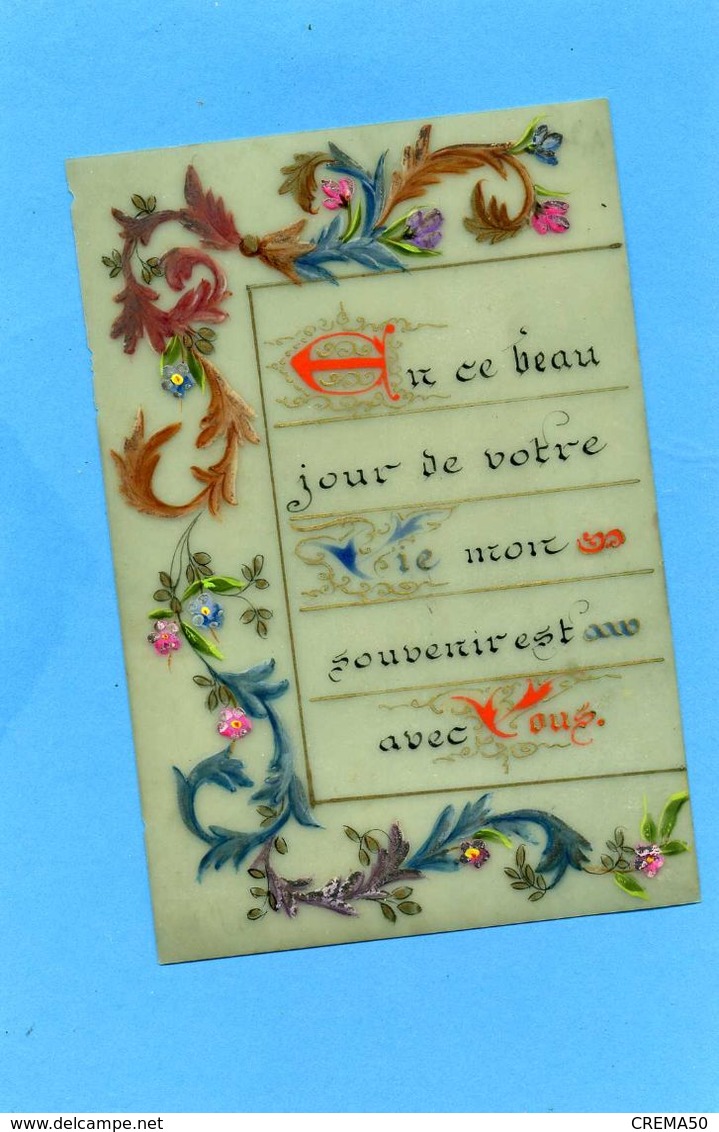 En ce beau
jour de votre
Vie mon
souvenir est
avec Vous.
Delcampe.net
CREMA50